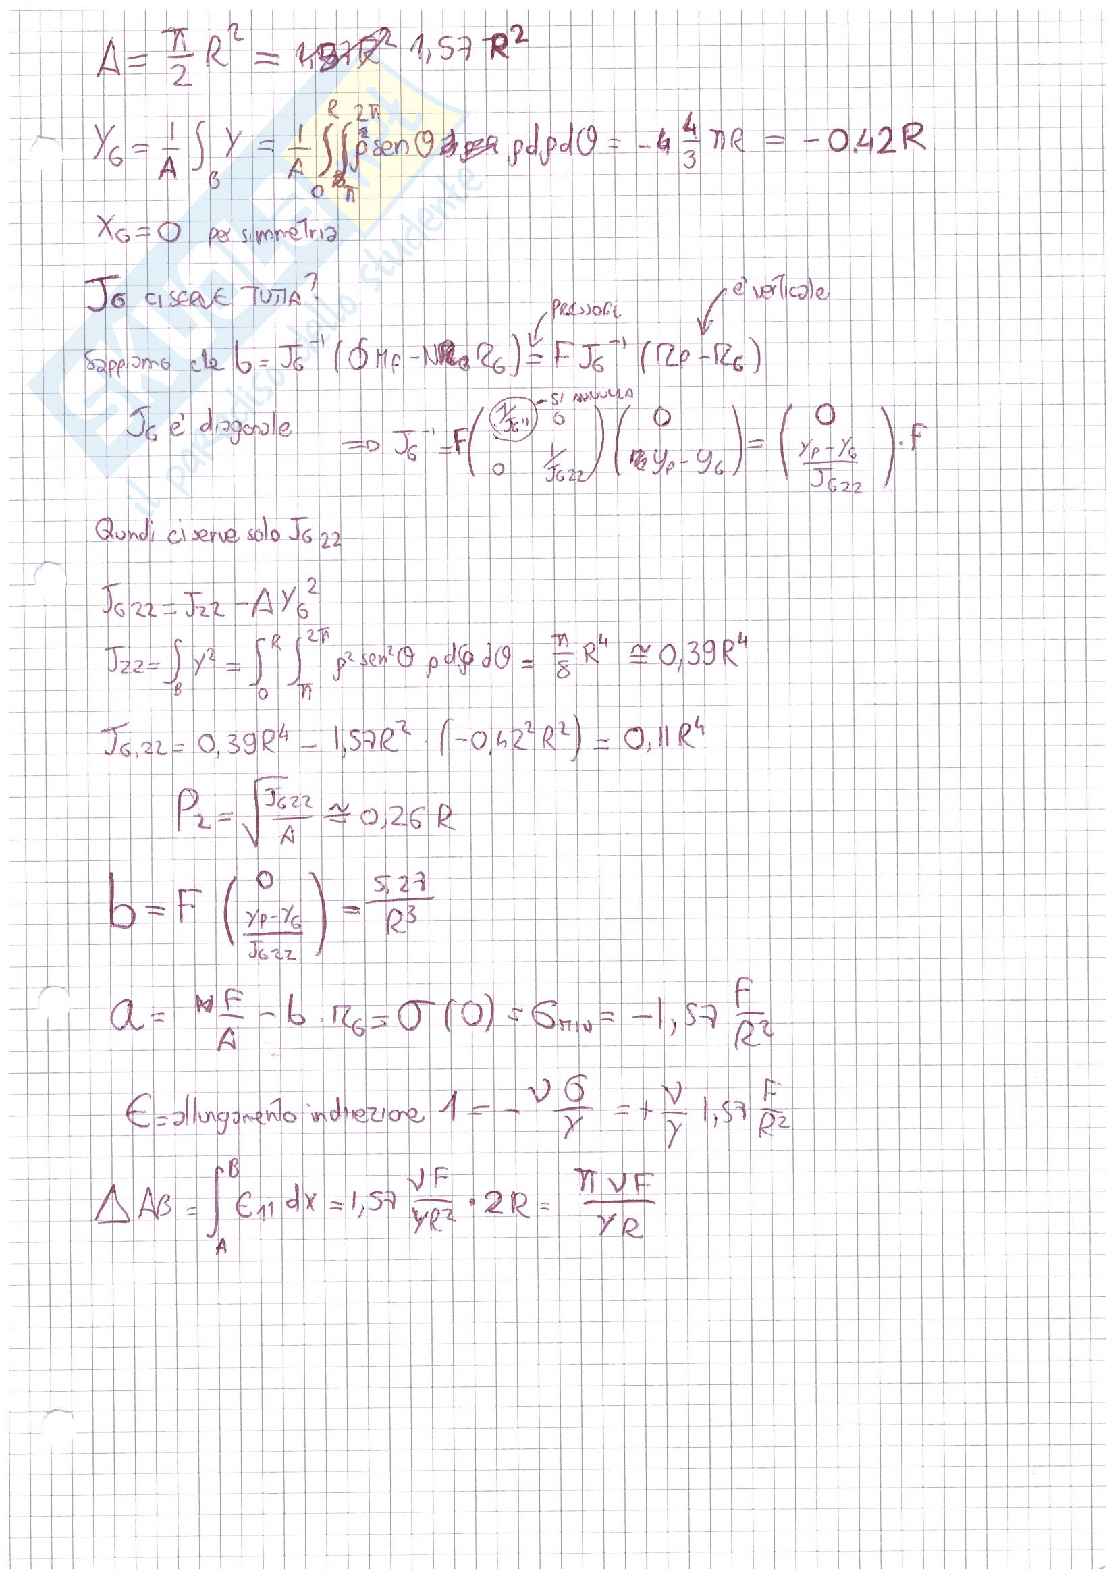 A = π/2 R² = 1,57 R²
Y_G = 1/A ∫_B Y = 1/A ∫_0^R ∫_π^2π ρ sen θ ρ dρ dθ = - 4/3 π R = - 0.42 R
X_G = 0 per simmetria
J_G CI SERVE TUTTA?
è verticale
pressoflc
Sappiamo che b = J_G⁻¹ (σ M_F - N r_G) = F J_G⁻¹ (r_P - r_G)
si annulla
J_G è diagonale ⇒ J_G⁻¹ = F (1/J_G11 0 ; 0 1/J_G22) (0 ; y_P - y_G) = (0 ; (y_P - y_G)/J_G22) · F
Quindi ci serve solo J_G22
J_G22 = J_22 - A Y_G²
J_22 = ∫_B Y² = ∫_0^R ∫_π^2π ρ² sen² θ ρ dρ dθ = π/8 R⁴ ≅ 0,39 R⁴
J_G,22 = 0,39 R⁴ - 1,57 R² · (-0,42² R²) = 0,11 R⁴
ρ_2 = √(J_G22/A) ≅ 0,26 R
b = F (0 ; (y_P - y_G)/J_G22) = 5,27/R³
a = F/A - b · r_G = σ(0) = σ_min = -1,57 F/R²
ϵ = allungamento in direzione 1 = - ν σ/Y = + ν/Y 1,57 F/R²
Δ AB = ∫_A^B ϵ_11 dx = 1,57 νF/YR² · 2R = π ν F/YR
SKUOLA.net
il paradiso dello studente